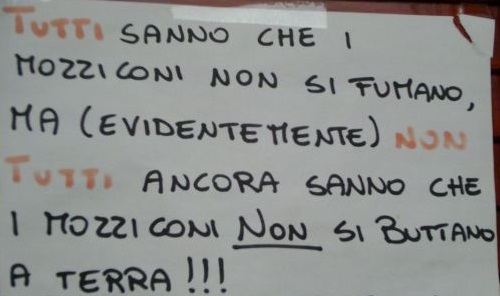 TUTTI SANNO CHE I
MOZZICONI NON SI FUMANO,
MA (EVIDENTEMENTE) NON
TUTTI ANCORA SANNO CHE
I MOZZICONI NON SI BUTTANO
A TERRA!!!